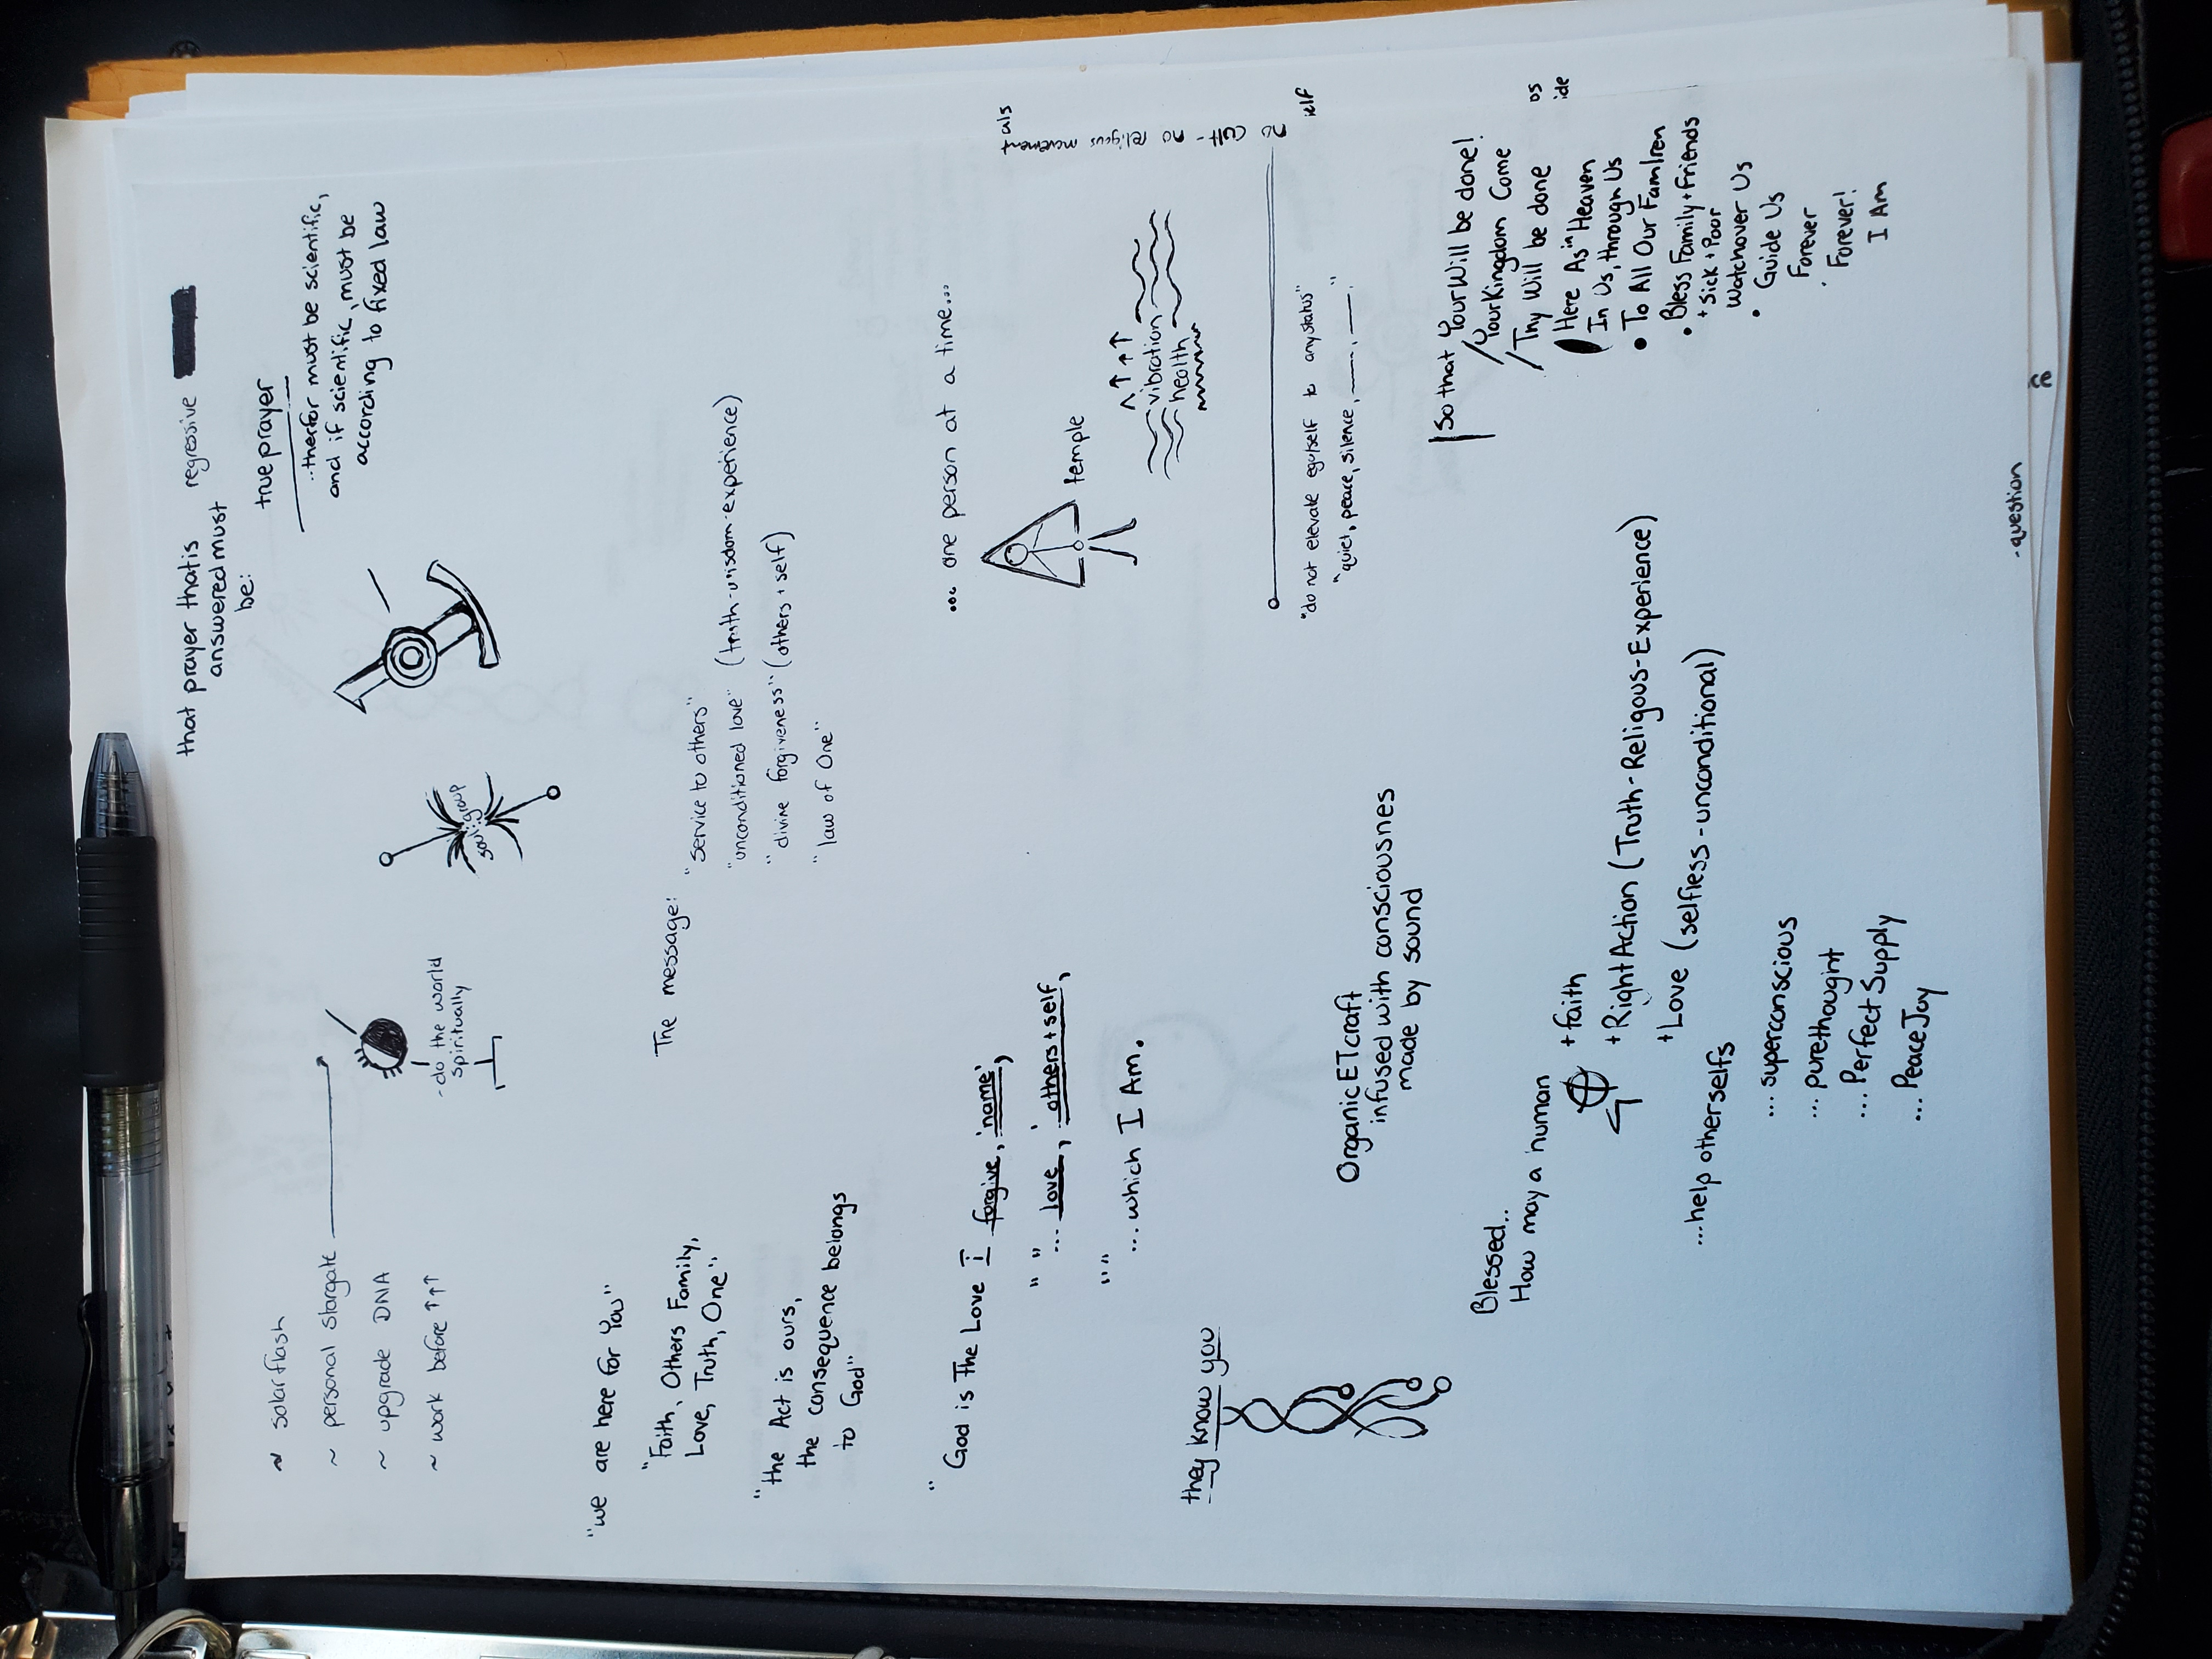 that prayer that is regressive
answered must
be:
true prayer
...therfor must be scientific,
and if scientific, must be
according to fixed law
~ solar flash
~ personal stargate
~ upgrade DNA
~ work before ↑↑↑
- do the world
spiritually
soul group
"we are here for You"
"Faith, Others Family,
Love, Truth, One"
"the Act is ours,
the consequence belongs
to God"
The message:
"service to others"
"unconditioned love" (truth-wisdom-experience)
"divine forgiveness" (others + self)
"law of One"
"God is The Love I forgive, 'name',
" " ... love, 'others + self,
" " ...which I Am.
... one person at a time...
temple
^ ↑ ↑ ↑
vibration
health
no cult - no religous movement
als
self
"do not elevate ego/self to any status"
"quiet, peace, silence, ___, ___."
they know you
Organic ET craft
infused with consciousnes
made by sound
Blessed..
How may a human
+ faith
+ Right Action (Truth-Religous-Experience)
+ Love (selfless-unconditional)
....help otherselfs
... superconscious
... purethought
... Perfect Supply
... Peace Joy
So that Your Will be done!
Your Kingdom Come
Thy Will be done
Here As in Heaven
In Us, through Us
• To All Our Fam/ren
• Bless Family + Friends
+ Sick + Poor
Watchover Us
• Guide Us
Forever
Forever!
I Am
os
ide
- question
ce